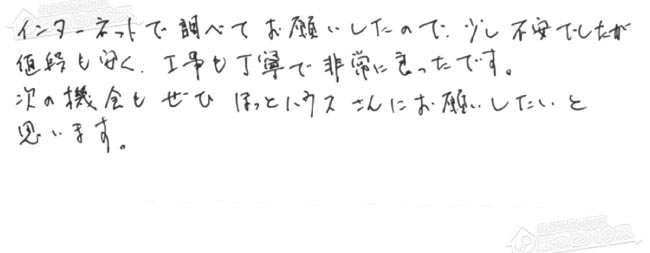 インターネットで調べてお願いしたので、少し不安でしたが
値段も安く、工事も丁寧で非常に良ったです。
次の機会も ぜひ ほっとハウス さんにお願いしたいと
思います。
ほっとハウス